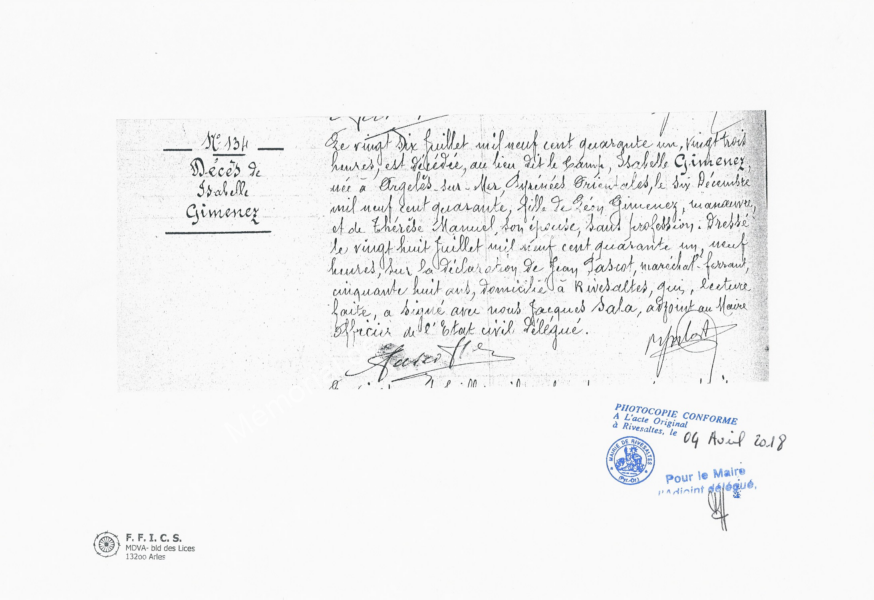 N° 134
Décès de
Isabelle
Gimenez
Le vingt six Juillet mil neuf cent quarante un, vingt trois
heures, est décédée, au lieu dit le Camp, Isabelle Gimenez,
née à Argelès-sur-Mer, Pyrénées Orientales, le six Décembre
mil neuf cent quarante, fille de Léon Gimenez, manœuvre,
et de Thérèse Manuel, son épouse, sans profession. Dressé
le vingt huit Juillet mil neuf cent quarante un, neuf
heures, sur la déclaration de Jean Pascot, maréchal-ferrant,
cinquante huit ans, domicilié à Rivesaltes, qui, lecture
faite, a signé avec nous Jacques Sala, adjoint au Maire
Officier de l'Etat civil Délégué.
PHOTOCOPIE CONFORME
A L'acte Original
à Rivesaltes, le 04 Avril 2018
MAIRIE DE RIVESALTES
(Pyr.-Or.)
Pour le Maire
l'Adjoint délégué,
F. F. I. C. S.
MDVA- bld des Lices
13200 Arles